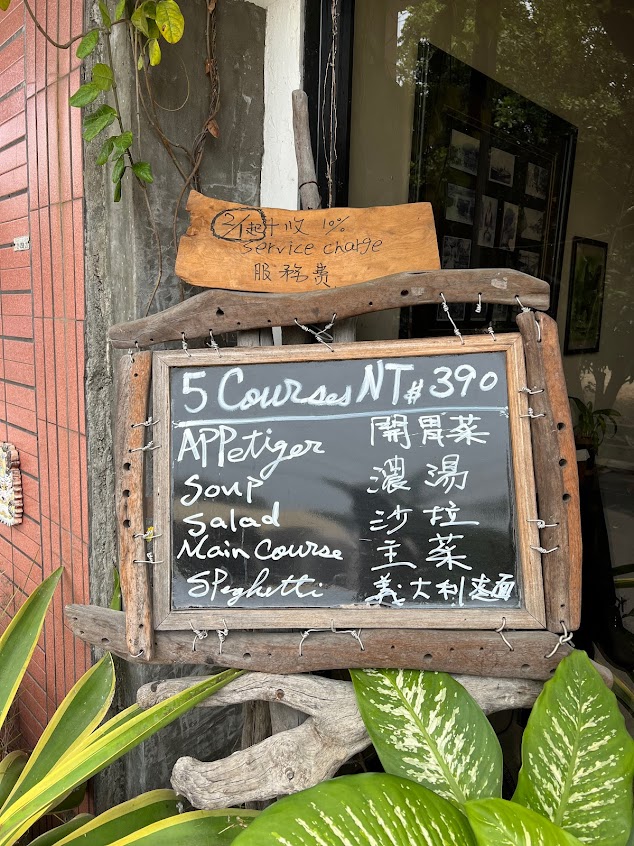 2/1起 收 10%
Service charge
服務費
5 Courses NT$ 390
APPetizer 開胃菜
Soup 濃湯
Salad 沙拉
Main Course 主菜
SPeghetti 義大利麵